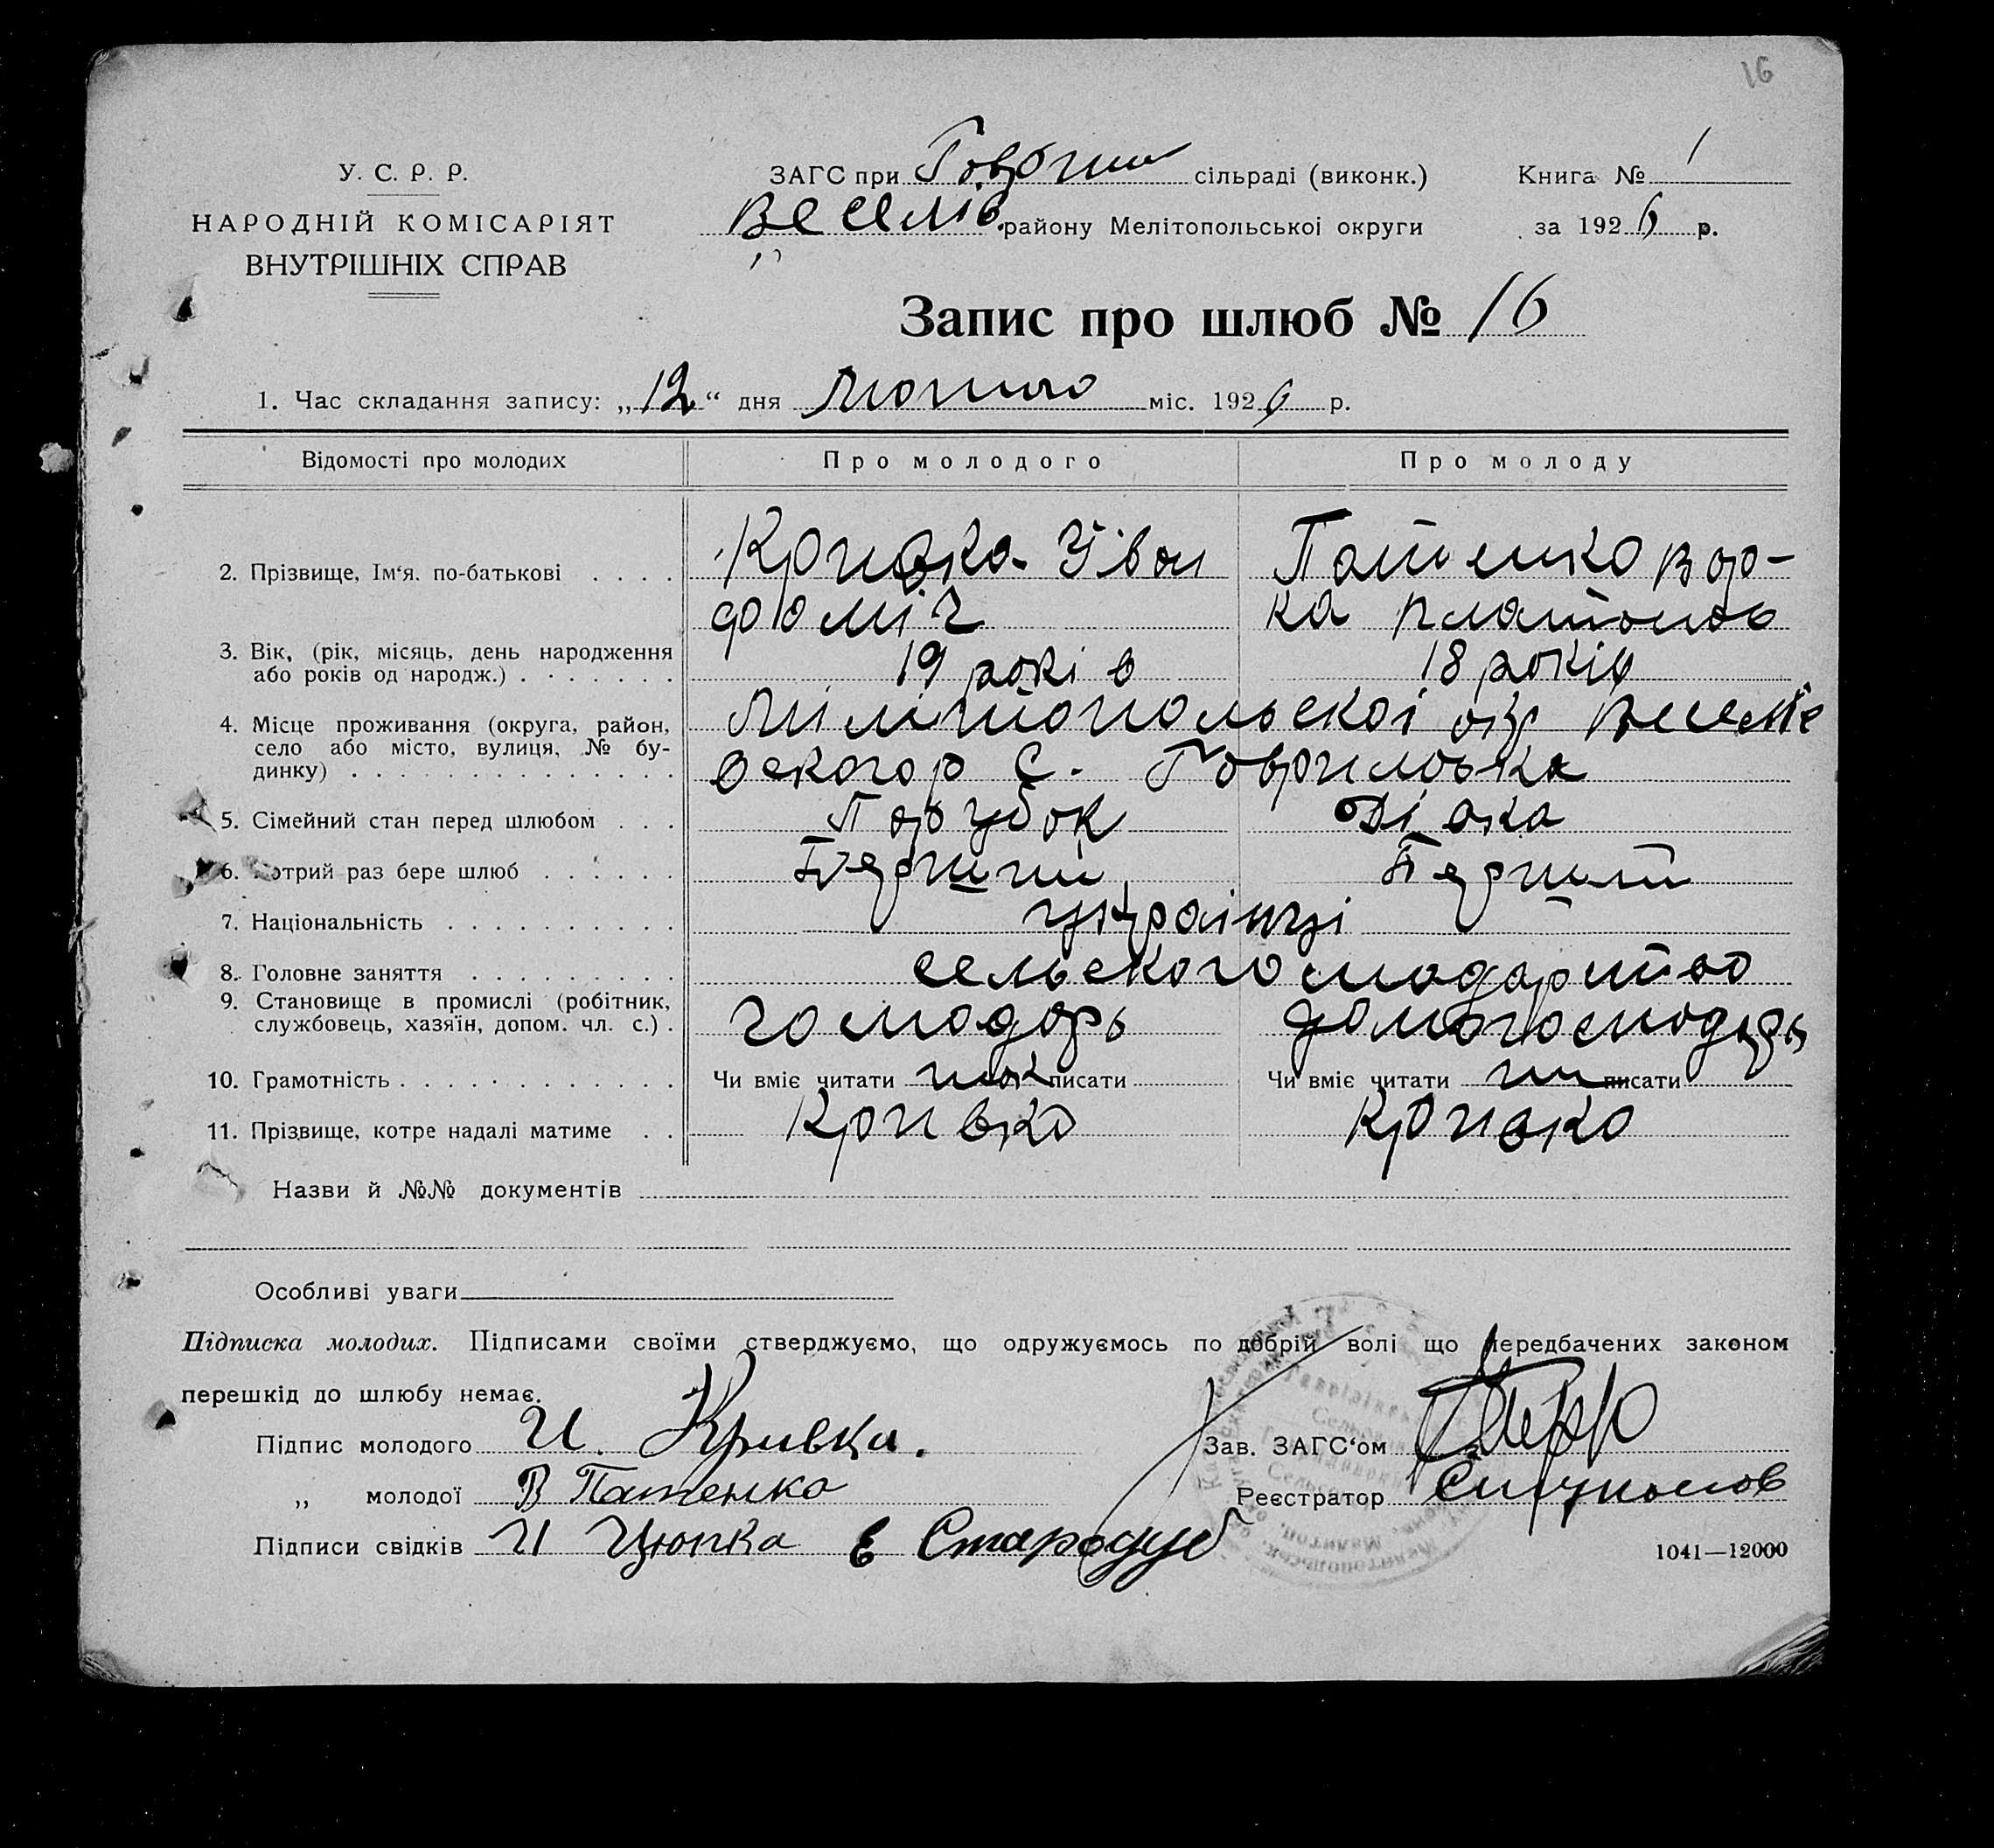 16
У. С. Р. Р.
НАРОДНІЙ КОМІСАРІЯТ
ВНУТРІШНІХ СПРАВ
ЗАГС при сільраді (виконк.)
Веселів. району Мелітопольської округи
Книга № 1
за 1926 р.
Запис про шлюб № 16
1. Час складання запису: „12“ дня лютого міс. 1926 р.
Відомості про молодих Про молодого Про молоду
2. Прізвище, Ім‘я. по-батькові . . . . Кривка Іван Патенко Вар-
фоміч ка платонов
3. Вік, (рік, місяць, день народження
або років од народж.) . . . . . . . 19 років 18 років
4. Місце проживання (округа, район,
село або місто, вулиця, № бу-
динку) . . . . . . . . . . . . . . Мілітопольскоі окр Веселів
оскогор С. Гавриловка
5. Сімейний стан перед шлюбом . . . Парубок Дівка
6. Котрий раз бере шлюб . . . . . . Перший Перший
7. Національність . . . . . . . . . . українці
8. Головне заняття . . . . . . . . . сельского сподарство
9. Становище в промислі (робітник,
службовець, хазяїн, допом. чл. с.) . господарь
10. Грамотність . . . . . . . . . . . . Чи вміє читати писати Чи вміє читати писати
11. Прізвище, котре надалі матиме . . Кривка Кривка
Назви й №№ документів
Особливі уваги
Підписка молодих. Підписами своїми стверджуємо, що одружуємось по добрій волі що передбачених законом
перешкід до шлюбу немає.
Підпис молодого И. Кривка. Зав. ЗАГС‘ом
„ молодої В Патенко Реєстратор
Підписи свідків И Цюпка Е Стародуб
1041—12000